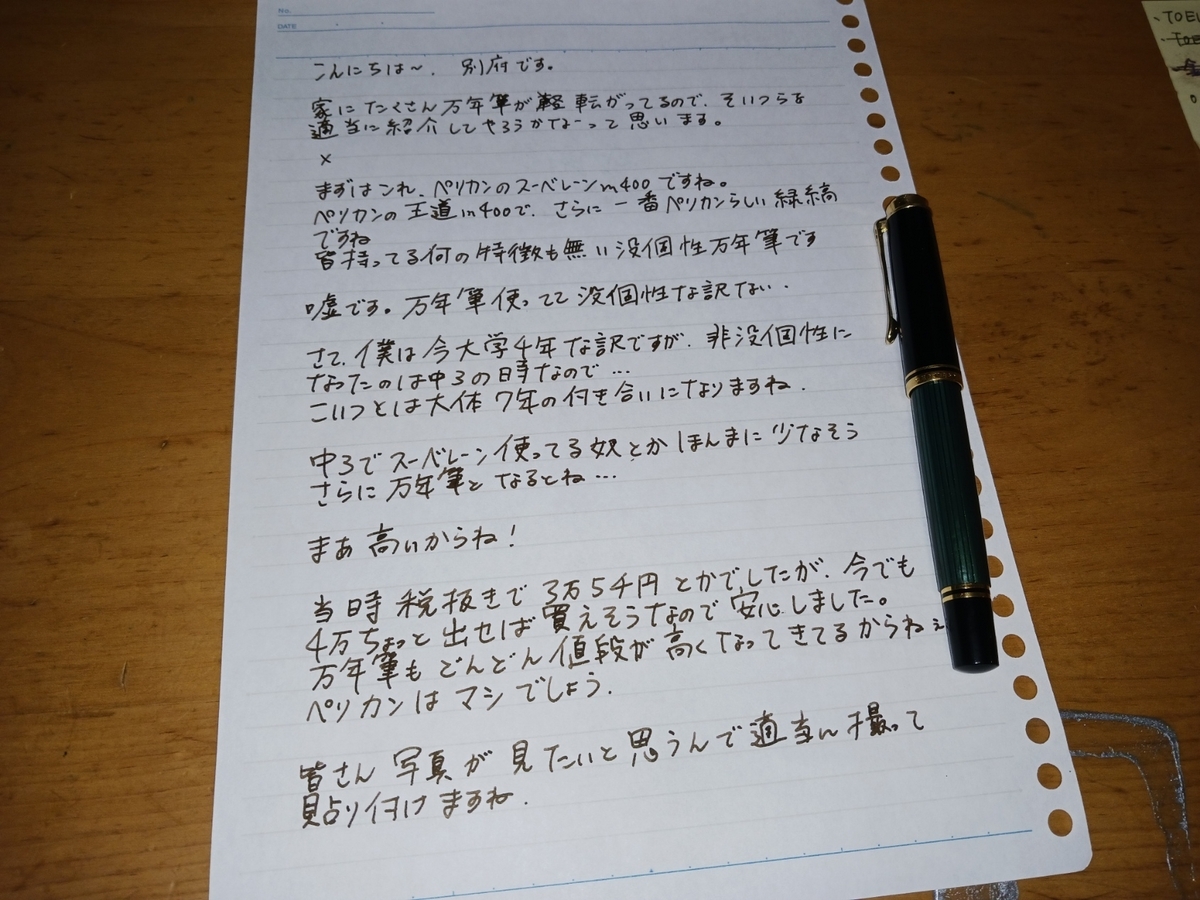 No.
DATE
こんにちは～. 別府です。
家にたくさん万年筆が転がってるので、そいつらを
適当に紹介してやろうかなーって思います。
×
まずはこれ、ペリカンのスーベレーンm400ですね。
ペリカンの王道m400で、さらに一番ペリカンらしい緑縞
ですね
皆持ってる何の特徴も無い没個性万年筆です
嘘です。万年筆使ってて没個性な訳ない..
さて、僕は今大学4年な訳ですが、非没個性に
なったのは中3の時なので…
こいつとは大体7年の付き合いになりますね.
中3でスーベレーン使ってる奴とかほんまに少なそう
さらに万年筆となるとね…
まあ高いからね！
当時税抜きで3万5千円とかでしたが、今でも
4万ちょっと出せば買えそうなので安心しました。
万年筆もどんどん値段が高くなってきてるからねぇ
ペリカンはマシでしょう.
皆さん写真が見たいと思うんで適当に撮って
貼り付けますね.
TOEI